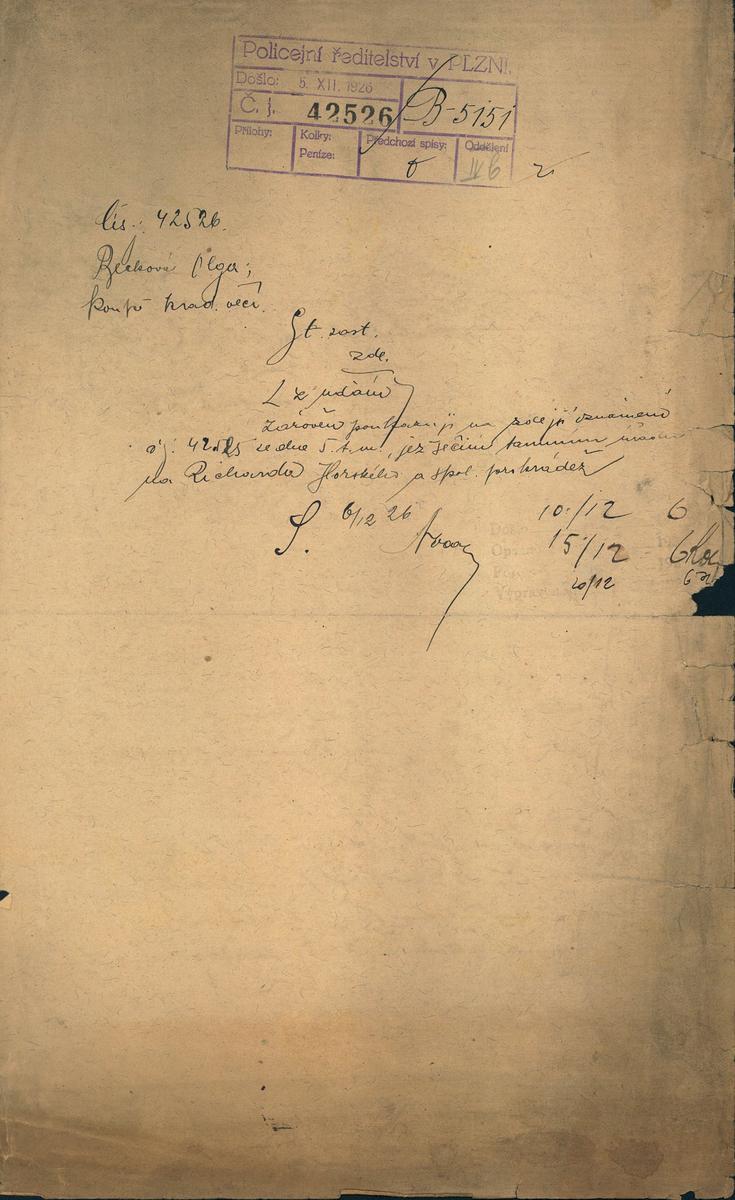 Policejní ředitelství v PLZNI.
Došlo: 5. XII. 1926
Č. j. 42526 B-5151
Přílohy: Kolky: Peníze: Předchozí spisy: Oddělení IV 6
čís. 42526.
Becková Olga;
koupě krad. věcí.
St. zást.
zde.
zároveň poukazuji na zdejší oznámení
čj. 42525 ze dne 5. t. m., jež
na Richarda Horského a spol. pro krádež
S. 6/12 26
10./12 6
15/12 6
20/12 6